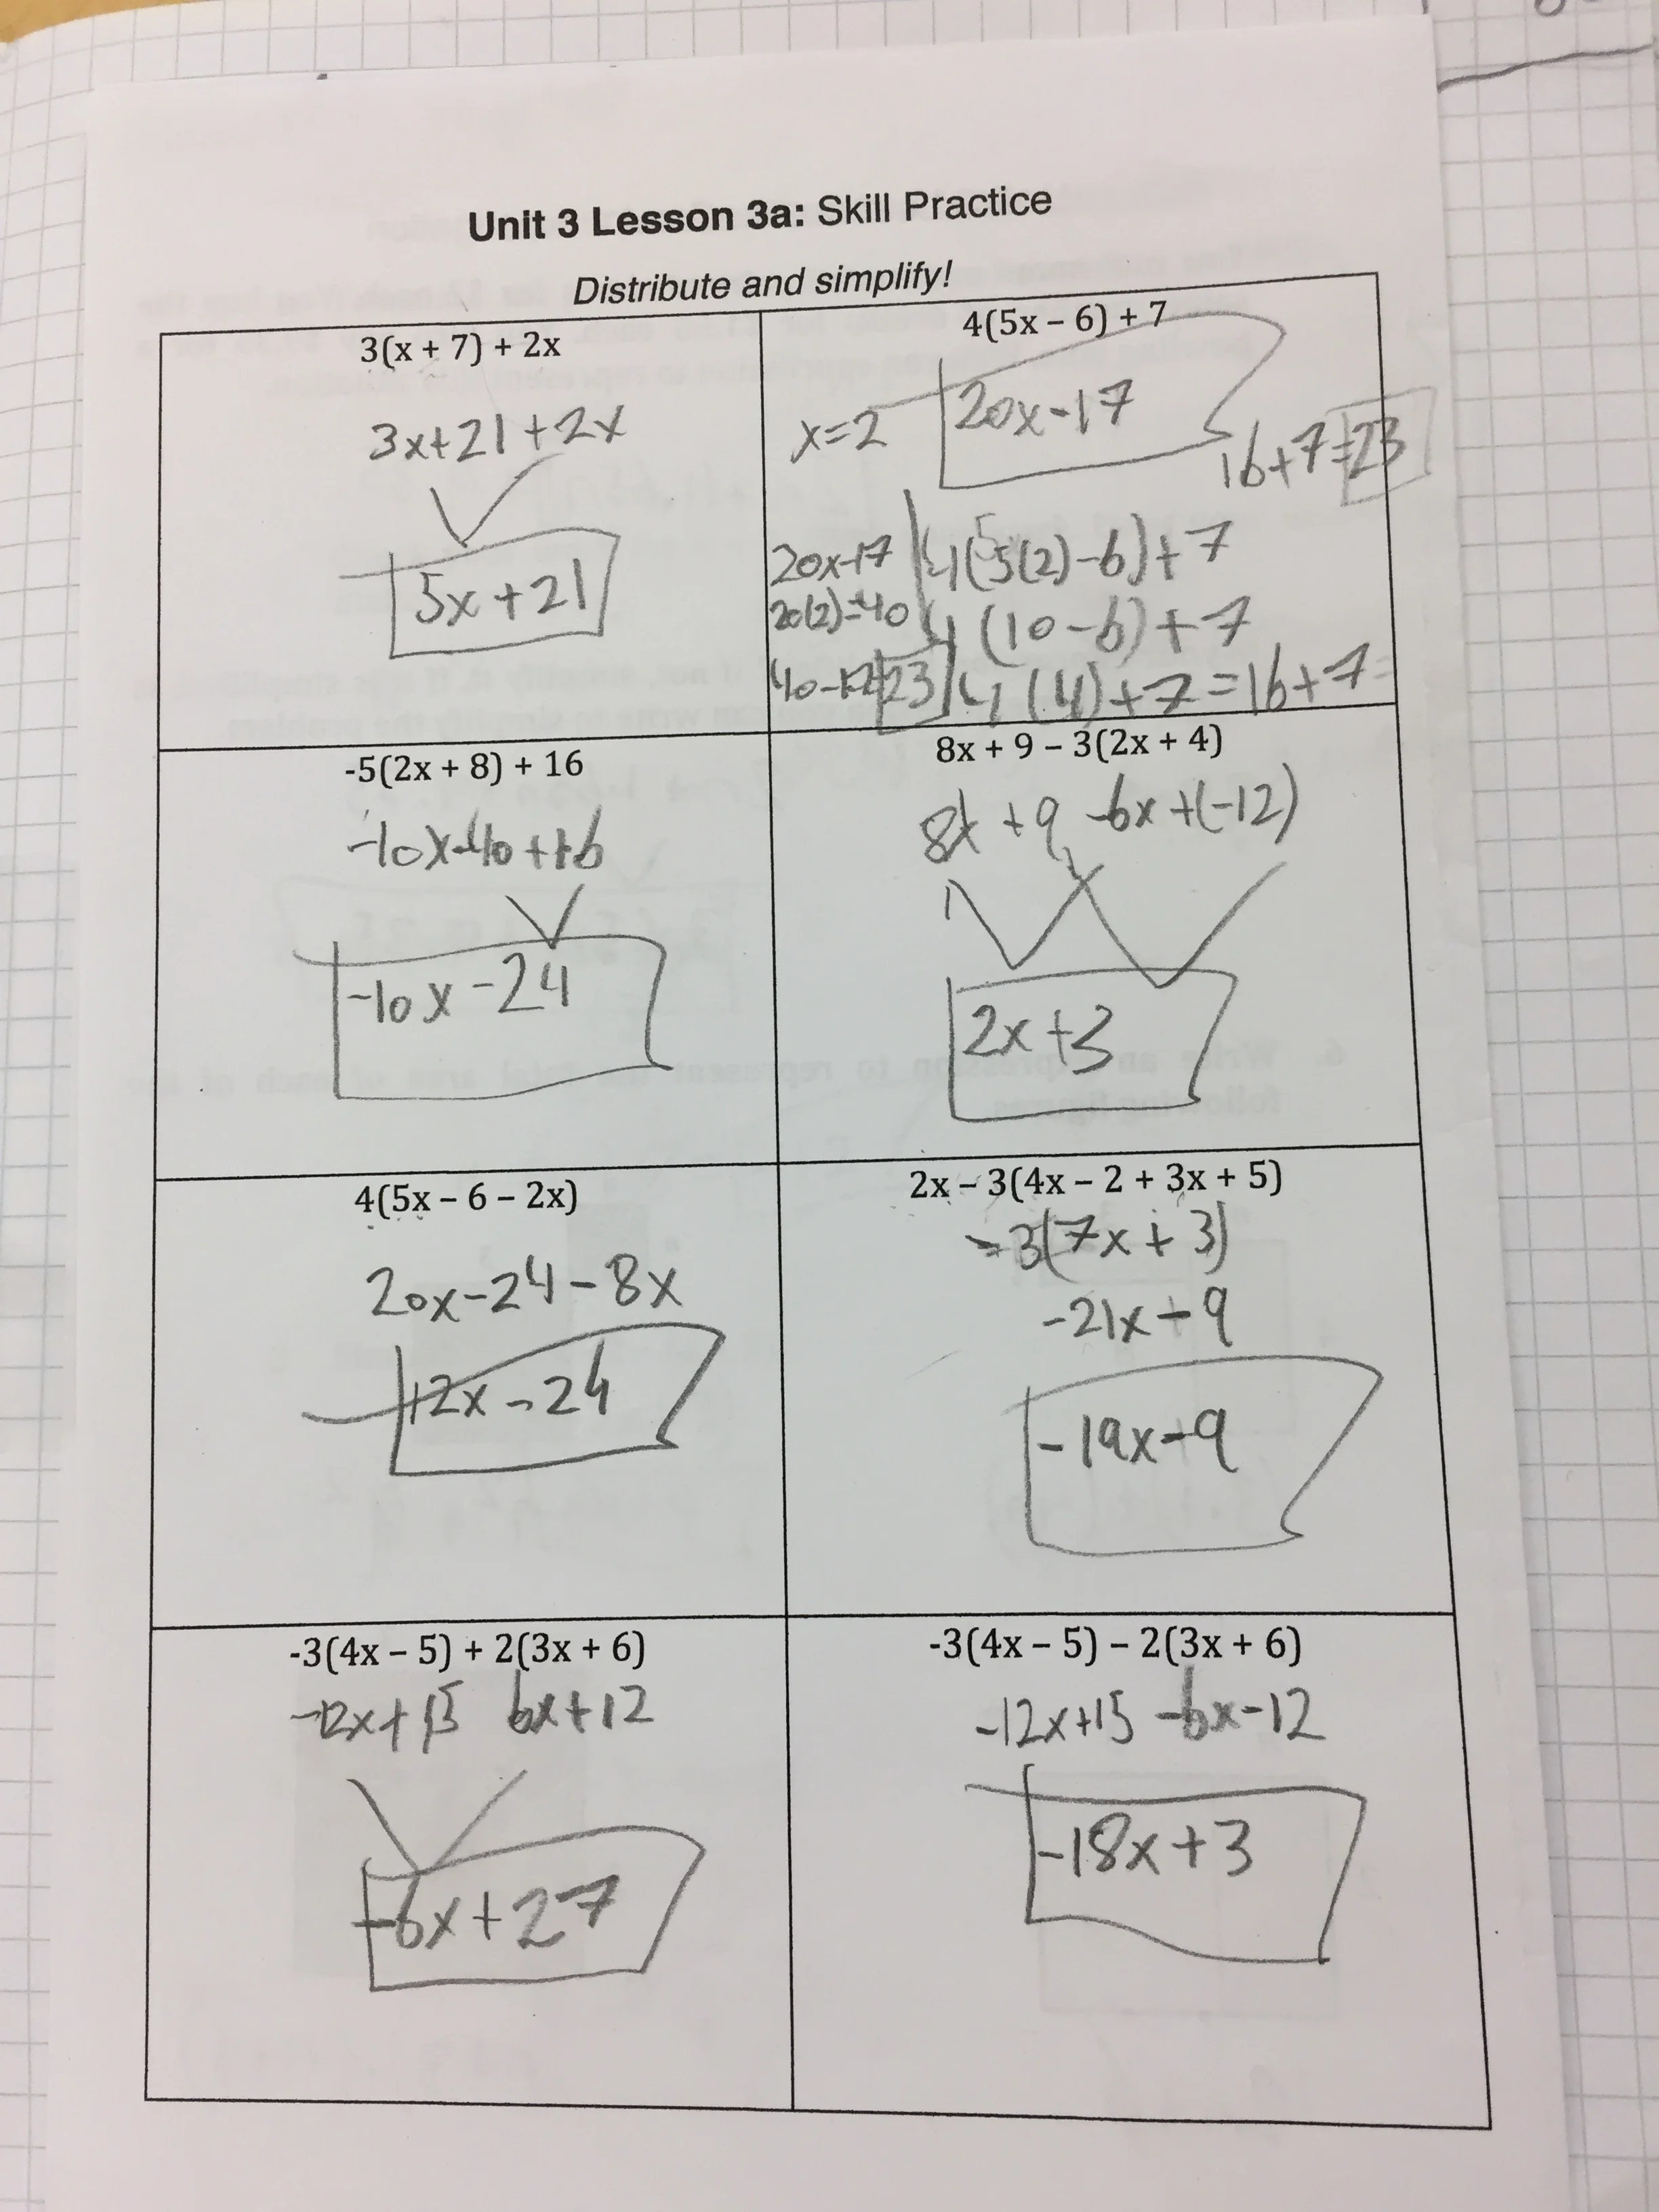 Unit 3 Lesson 3a: Skill Practice
Distribute and simplify!
3(x + 7) + 2x
3x+21+2x
5x+21
4(5x – 6) + 7
20x-17
x=2
16+7=23
20x-17
20(2)=40
40-17=23
4(5(2)-6)+7
4(10-6)+7
4(4)+7=16+7=
-5(2x + 8) + 16
-10x-40+16
-10x-24
8x + 9 – 3(2x + 4)
8x+9 -6x+(-12)
2x+3
4(5x – 6 – 2x)
20x-24-8x
12x-24
2x – 3(4x – 2 + 3x + 5)
-3(7x+3)
-21x-9
-19x-9
-3(4x – 5) + 2(3x + 6)
-12x+15 6x+12
-6x+27
-3(4x – 5) – 2(3x + 6)
-12x+15 -6x-12
-18x+3